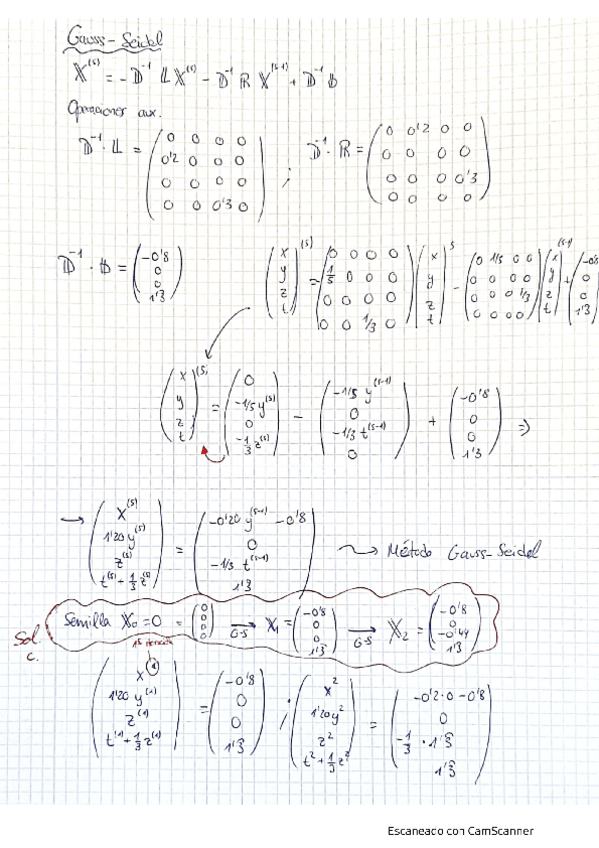 Gauss-Seidel
X^(s) = -D^-1 L X^(s) - D^-1 R X^(s-1) + D^-1 b
Operaciones aux.
D^-1 · L = (0 0 0 0; 0'2 0 0 0; 0 0 0 0; 0 0 0'3 0) ; D^-1 · R = (0 0'2 0 0; 0 0 0 0; 0 0 0 0'3; 0 0 0 0)
D^-1 · b = (-0'8; 0; 0; 1'3) (x; y; z; t)^(s) = (0 0 0 0; 1/5 0 0 0; 0 0 0 0; 0 0 1/3 0) (x; y; z; t)^s - (0 1/5 0 0; 0 0 0 0; 0 0 0 1/3; 0 0 0 0) (x; y; z; t)^(s-1) + (-0'8; 0; 0; 1'3)
(x; y; z; t)^(s) = (0; -1/5 y^(s); 0; -1/3 z^(s)) - (-1/5 y^(s-1); 0; -1/3 t^(s-1); 0) + (-0'8; 0; 0; 1'3) ⇒
→ (x^(s); 1'20 y^(s); z^(s); t^(s) + 1/3 z^(s)) = (-0'20 y^(s-1) - 0'8; 0; -1/3 t^(s-1); 1'3) → Método Gauss-Seidel
Sol c. Semilla X₀ = 0 = (0; 0; 0; 0) →G-S X₁ = (-0'8; 0; 0; 1'3) →G-S X₂ = (-0'8; 0; -0'44; 1'3)
1ª iteración
(x^(1); 1'20 y^(1); z^(1); t^(1) + 1/3 z^(1)) = (-0'8; 0; 0; 1'3) ; (x^2; 1'20 y^2; z^2; t^2 + 1/3 z^2) = (-0'2·0 - 0'8; 0; -1/3 · 1'3; 1'3)
Escaneado con CamScanner